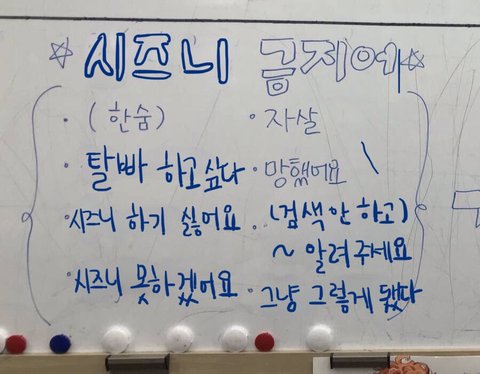 ☆ 시즈니 금지어 ☆
· (한숨)
· 탈빠 하고 싶다
· 시즈니 하기 싫어요
· 시즈니 못하겠어요
· 자살
· 망했어요
· (검색 안 하고)
~ 알려주세요
· 그냥 그렇게 됐다